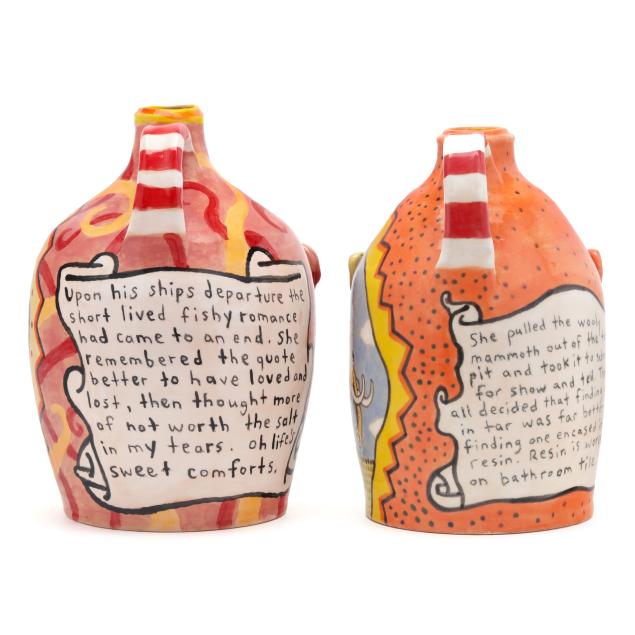 Upon his ships departure the
short lived fishy romance
had come to an end. She
remembered the quote
better to have loved and
lost, then thought more
of not worth the salt
in my tears. oh life's
sweet comforts.
She pulled the wooly
mammoth out of the
pit and took it to
for show and tell. The
all decided that finding
in tar was far better
finding one encased
resin. Resin is
on bathroom tile